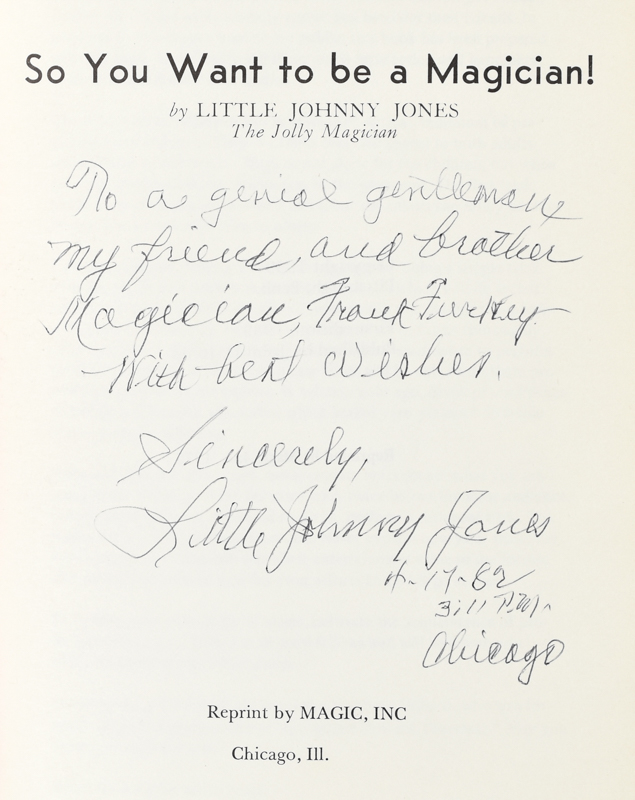 So You Want to be a Magician!
by LITTLE JOHNNY JONES
The Jolly Magician
To a genial gentleman,
my friend, and brother
Magician, Frank
With best Wishes.
Sincerely,
Little Johnny Jones
4-17-82
3:11 P.M.
Chicago
Reprint by MAGIC, INC
Chicago, Ill.